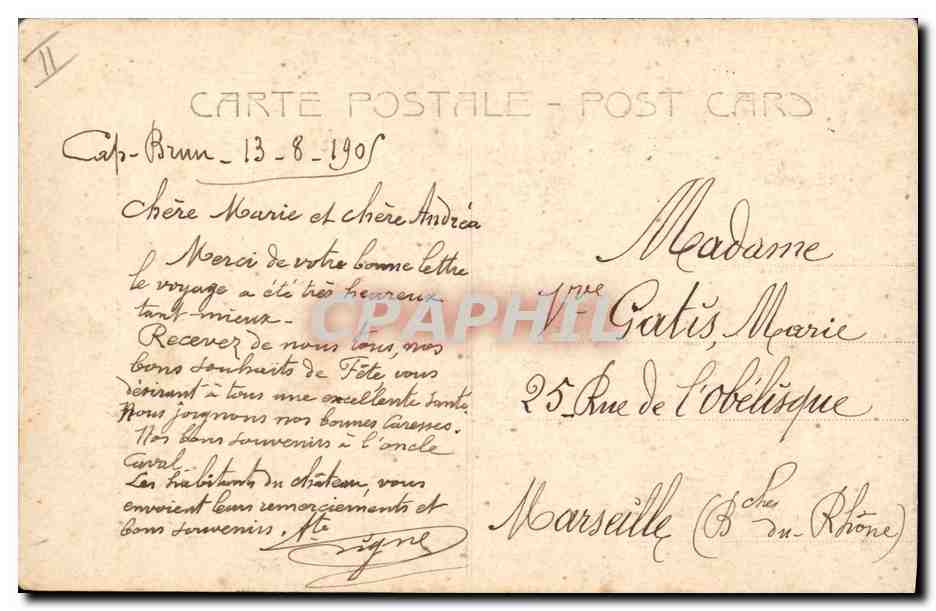 11
CARTE POSTALE - POST CARD
Cap-Brun - 13-8-1905
Chère Marie et chère Andréa
Merci de votre bonne lettre
le voyage a été très heureux
tant-mieux -
Recevez de nous tous, nos
bons souhaits de Fête vous
désirant à tous une excellente santé.
Nous joignons nos bonnes Caresses.
Nos bons souvenirs à l'oncle
Caval.
Les habitants du château, vous
envoient leurs remerciements et
bons souvenirs. Signe
Madame
Vve Gatis, Marie
25 Rue de l'Obélisque
Marseille (Bches du-Rhône)
CPAPHIL